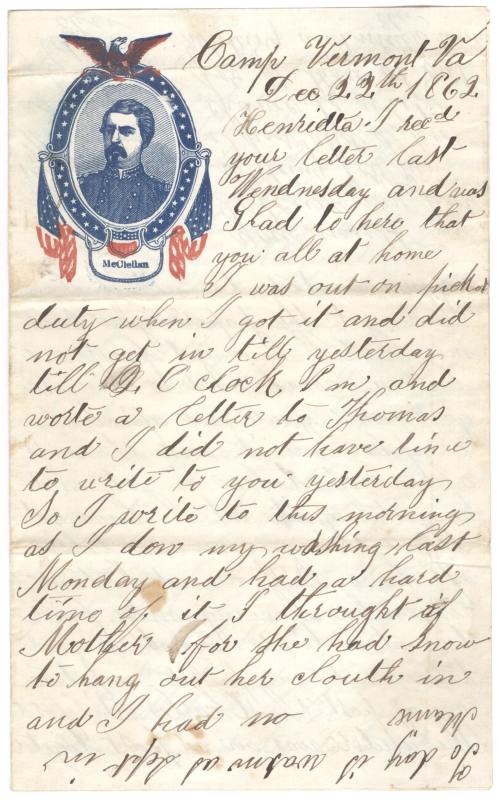 Camp Vermont Va
Dec 22th 1862
Henrietta I recd
your letter last
Wendnesday and was
Glad to here that
you all at home
I was out on picket
McClellan
duty when I got it and did
not get in till yesterday
till 2 O clock Pm and
worte a letter to Thomas
and I did not have time
to write to you yesterday
So I write to this morning
as I don my washing last
Monday and had a hard
time of it I throught of
Mother for she had snow
to hang out her clouth in
and I had no
To day is warm as Sept in